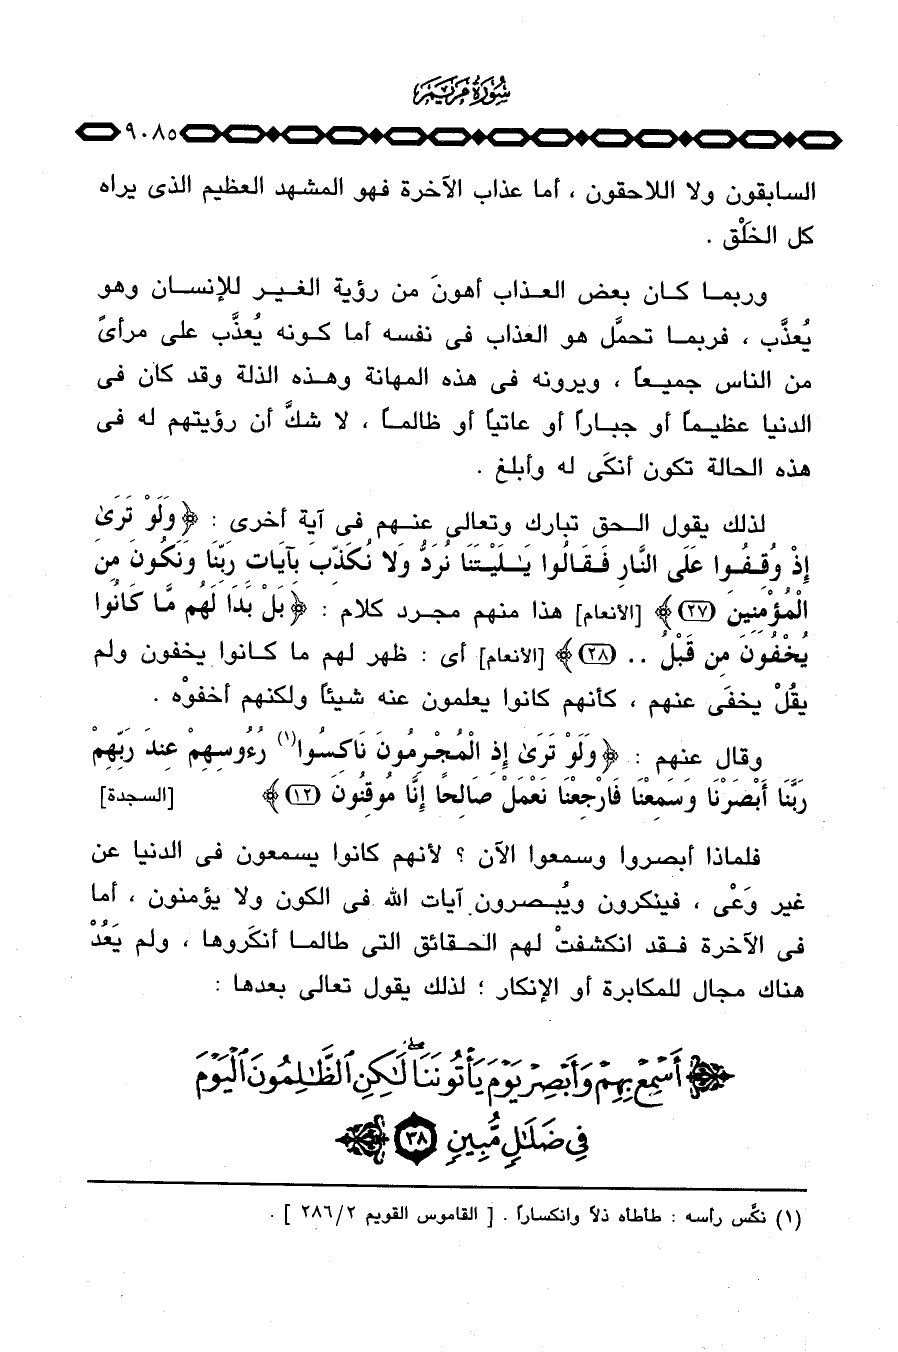 سُورَةُ مَرْيَمَ
٩٠٨٥
السابقون ولا اللاحقون ، أما عذاب الآخرة فهو المشهد العظيم الذى يراه
كل الخَلْق .
وربما كان بعض العذاب أهونَ من رؤية الغير للإنسان وهو
يُعذَّب ، فربما تحمَّل هو العذاب فى نفسه أما كونه يُعذَّب على مرأىً
من الناس جميعاً ، ويرونه فى هذه المهانة وهذه الذلة وقد كان فى
الدنيا عظيماً أو جباراً أو عاتياً أو ظالماً ، لا شكَّ أن رؤيتهم له فى
هذه الحالة تكون أنكَى له وأبلغ .
لذلك يقول الحق تبارك وتعالى عنهم فى آية أخرى : ﴿وَلَوْ تَرَىٰ
إِذْ وُقِفُوا عَلَى النَّارِ فَقَالُوا يَٰلَيْتَنَا نُرَدُّ وَلَا نُكَذِّبَ بِآيَاتِ رَبِّنَا وَنَكُونَ مِنَ
الْمُؤْمِنِينَ (٢٧)﴾ [الأنعام] هذا منهم مجرد كلام : ﴿بَلْ بَدَا لَهُم مَّا كَانُوا
يُخْفُونَ مِن قَبْلُ .. (٢٨)﴾ [الأنعام] أى : ظهر لهم ما كانوا يخفون ولم
يقُلْ يخفَى عنهم ، كأنهم كانوا يعلمون عنه شيئاً ولكنهم أخفوْه .
وقال عنهم : ﴿وَلَوْ تَرَىٰ إِذِ الْمُجْرِمُونَ نَاكِسُوا(١) رُءُوسِهِمْ عِندَ رَبِّهِمْ
رَبَّنَا أَبْصَرْنَا وَسَمِعْنَا فَارْجِعْنَا نَعْمَلْ صَالِحًا إِنَّا مُوقِنُونَ (١٢)﴾ [السجدة]
فلماذا أبصروا وسمعوا الآن ؟ لأنهم كانوا يسمعون فى الدنيا عن
غير وَعْى ، فينكرون ويُبصرون آيات الله فى الكون ولا يؤمنون ، أما
فى الآخرة فقد انكشفتْ لهم الحقائق التى طالما أنكَروها ، ولم يَعُدْ
هناك مجال للمكابرة أو الإنكار ؛ لذلك يقول تعالى بعدها :
﴿أَسْمِعْ بِهِمْ وَأَبْصِرْ يَوْمَ يَأْتُونَنَا ۖ لَٰكِنِ ٱلظَّٰلِمُونَ ٱلْيَوْمَ
فِي ضَلَٰلٍ مُّبِينٍ ٣٨﴾
(١) نكَّس رأسه : طأطأه ذلاً وانكساراً . [ القاموس القويم ٢٨٦/٢ ] .